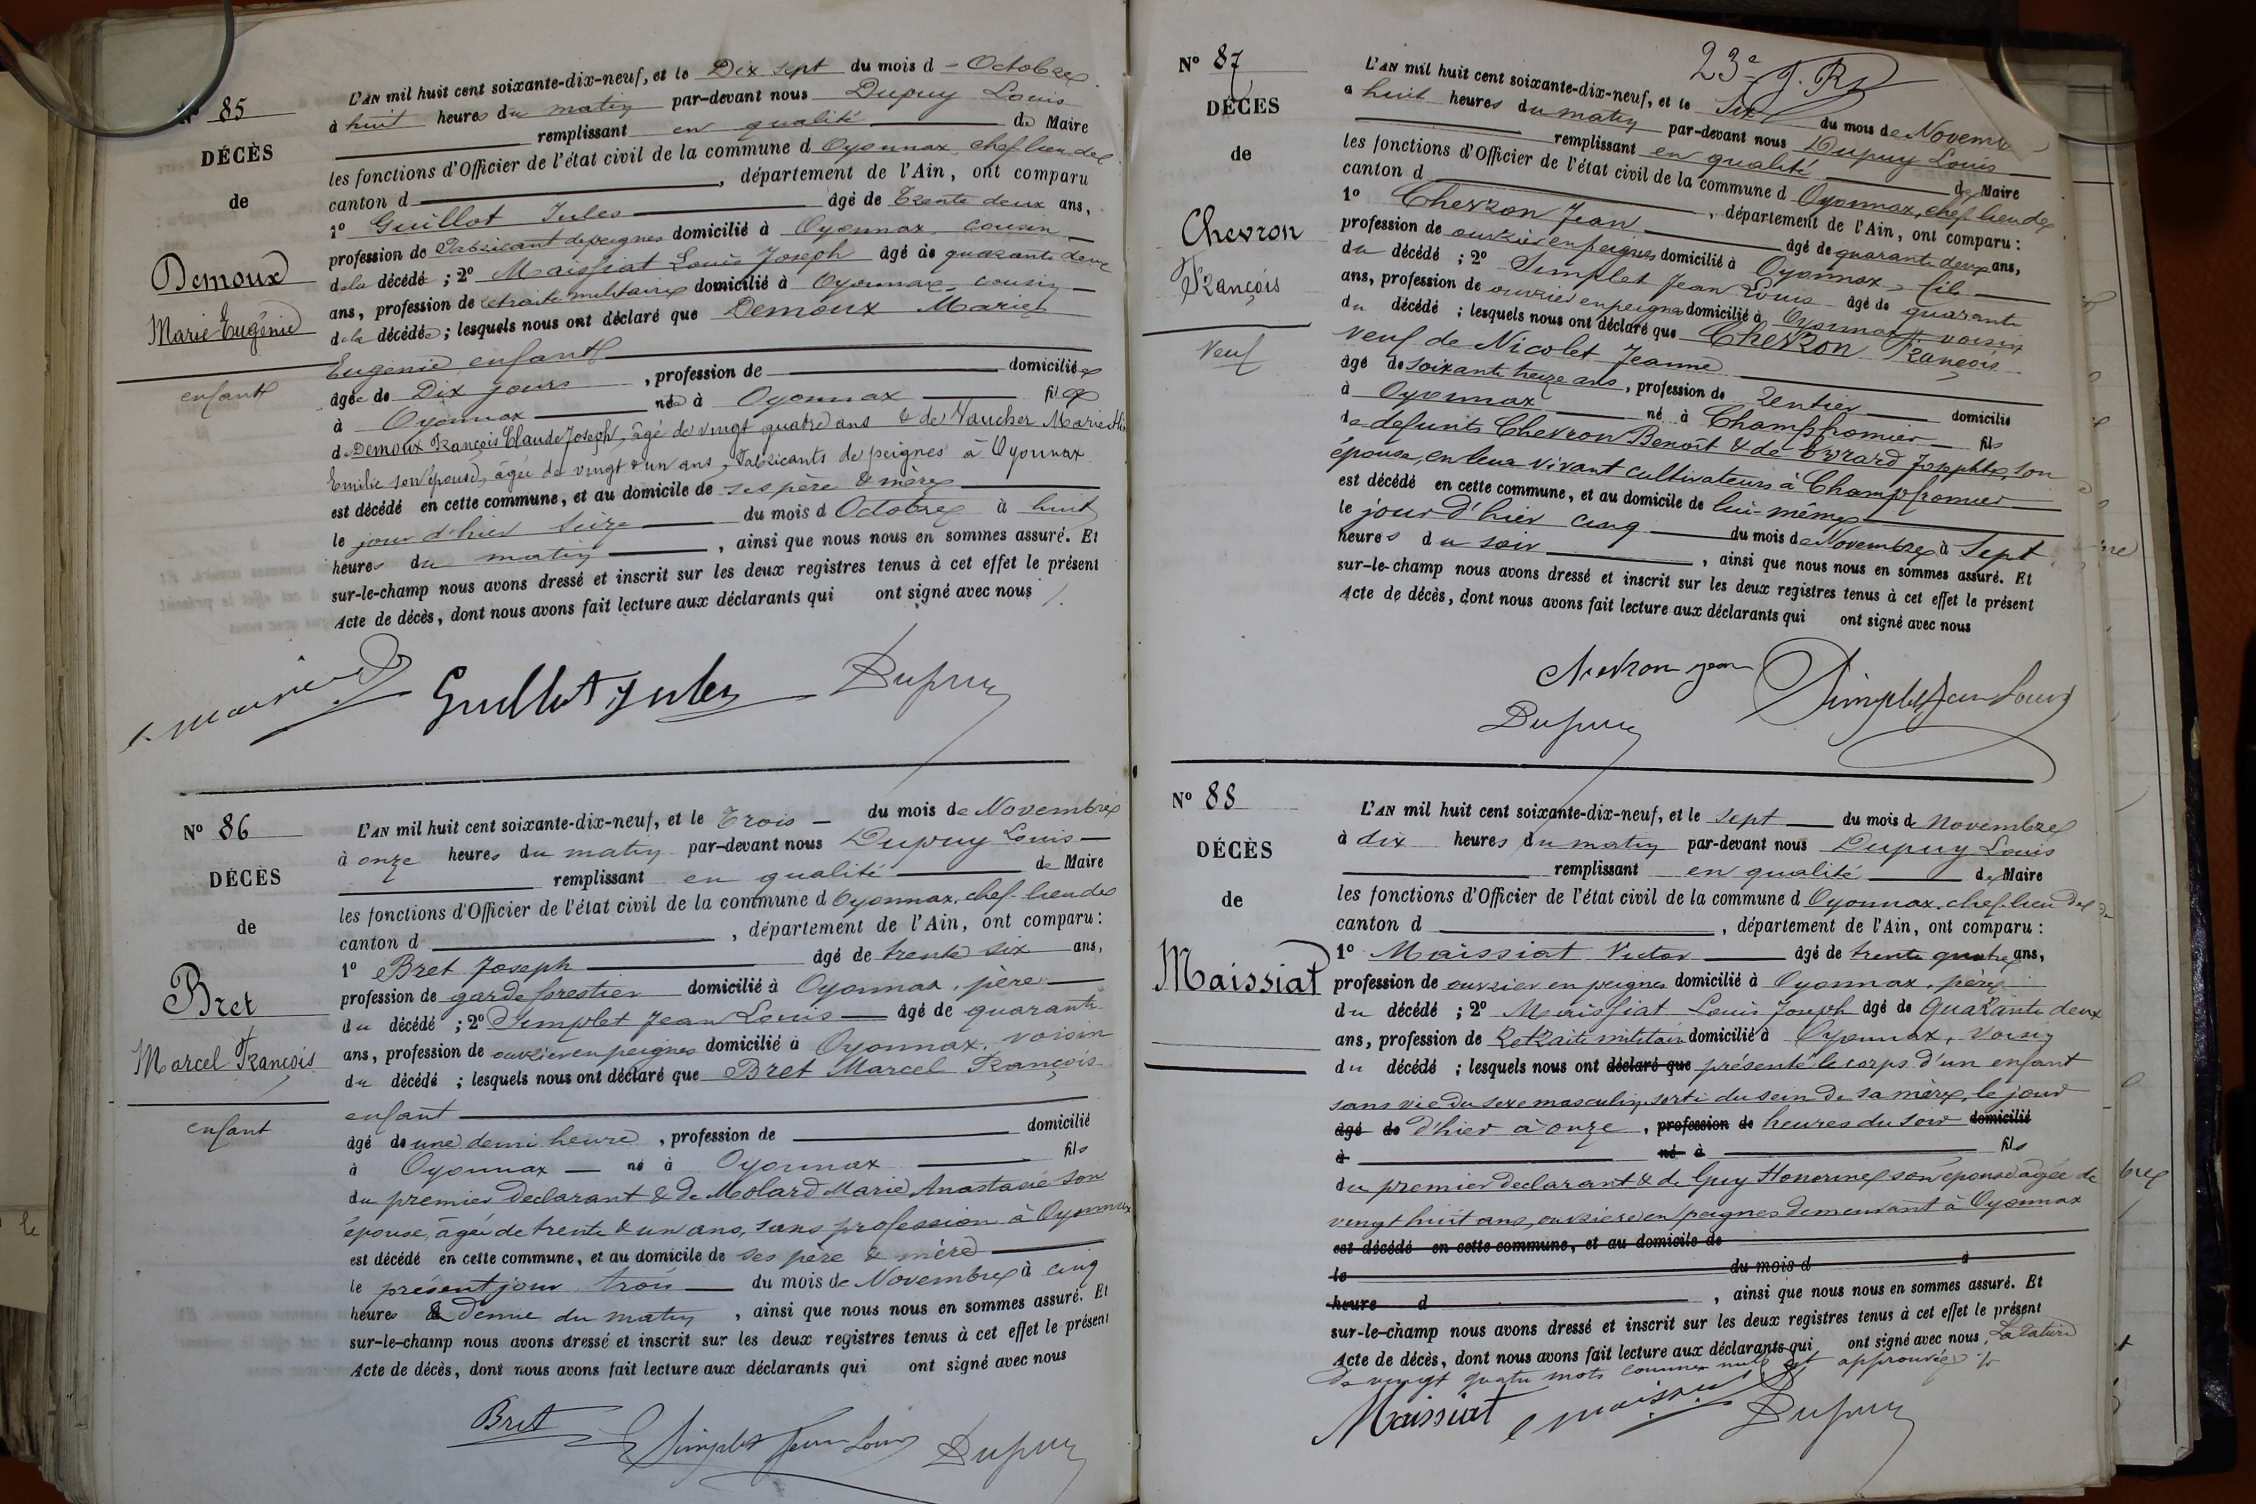 N° 85
DÉCÈS
de
Demoux
Marie Eugénie
enfant
L'AN mil huit cent soixante-dix-neuf, et le Dix sept du mois d Octobre
à huit heures du matin par-devant nous Dupuy Louis
remplissant en qualité de Maire
les fonctions d'Officier de l'état civil de la commune d Oyonnax chef lieu de
canton d , département de l'Ain, ont comparu
1° Guillot Jules âgé de Trente deux ans,
profession de Fabricant de peignes domicilié à Oyonnax cousin
de la décédé ; 2° Maissiat Louis Joseph âgé de quarante deux
ans, profession de retraité militaire domicilié à Oyonnax cousin
de la décédée ; lesquels nous ont déclaré que Demoux Marie
Eugénie enfant
âgée de Dix jours , profession de domiciliée
à Oyonnax née à Oyonnax fille
d Demoux François Claude Joseph, âgé de vingt quatre ans & de Vaucher Marie
Emilie son épouse, âgée de vingt & un ans, Fabricants de peignes à Oyonnax
est décédé en cette commune, et au domicile de ses père & mère
le jour d'hier Seize du mois d Octobre à huit
heures du matin , ainsi que nous nous en sommes assuré. Et
sur-le-champ nous avons dressé et inscrit sur les deux registres tenus à cet effet le présent
Acte de décès, dont nous avons fait lecture aux déclarants qui ont signé avec nous
Guillot Jules Dupuy
N° 86
DÉCÈS
de
Bret
Marcel François
enfant
L'AN mil huit cent soixante-dix-neuf, et le Trois du mois de Novembre
à onze heures du matin par-devant nous Dupuy Louis
remplissant en qualité de Maire
les fonctions d'Officier de l'état civil de la commune d Oyonnax, chef-lieu de
canton d , département de l'Ain, ont comparu :
1° Bret Joseph âgé de trente six ans,
profession de garde forestier domicilié à Oyonnax, père
du décédé ; 2° Simplet Jean Louis âgé de quarante
ans, profession de ouvrier en peignes domicilié à Oyonnax, voisin
du décédé ; lesquels nous ont déclaré que Bret Marcel François
enfant
âgé de une demi heure , profession de domicilié
à Oyonnax né à Oyonnax fils
du premier declarant & de Molard Marie Anastasie son
épouse, âgée de trente & un ans, sans profession à Oyonnax
est décédé en cette commune, et au domicile de ses père & mère
le présent jour trois du mois de Novembre à cinq
heures & demie du matin , ainsi que nous nous en sommes assuré. Et
sur-le-champ nous avons dressé et inscrit sur les deux registres tenus à cet effet le présent
Acte de décès, dont nous avons fait lecture aux déclarants qui ont signé avec nous
Bret Simplet Jean Louis Dupuy
23e
N° 87
DÉCÈS
de
Chevron
François
Veuf
L'AN mil huit cent soixante-dix-neuf, et le Six du mois de Novembre
à huit heures du matin par-devant nous Dupuy Louis
remplissant en qualité de Maire
les fonctions d'Officier de l'état civil de la commune d Oyonnax, chef lieu de
canton d , département de l'Ain, ont comparu :
1° Chevron Jean âgé de quarante deux ans,
profession de ouvrier en peignes domicilié à Oyonnax, fils
du décédé ; 2° Simplet Jean Louis âgé de quarante
ans, profession de ouvrier en peignes domicilié à Oyonnax voisin
du décédé ; lesquels nous ont déclaré que Chevron François
veuf de Nicolet Jeanne
âgé de soixante treize ans, profession de Rentier domicilié
à Oyonnax né à Champfromier fils
de défunts Chevron Benoît & de Evrard Josephte, son
épouse, en leur vivant cultivateurs à Champfromier
est décédé en cette commune, et au domicile de lui-même
le jour d'hier cinq du mois de Novembre à Sept
heures du soir , ainsi que nous nous en sommes assuré. Et
sur-le-champ nous avons dressé et inscrit sur les deux registres tenus à cet effet le présent
Acte de décès, dont nous avons fait lecture aux déclarants qui ont signé avec nous
Chevron Jean Simplet Jean Louis
Dupuy
N° 88
DÉCÈS
de
Maissiat
L'AN mil huit cent soixante-dix-neuf, et le sept du mois de Novembre
à dix heures du matin par-devant nous Dupuy Louis
remplissant en qualité de Maire
les fonctions d'Officier de l'état civil de la commune d Oyonnax, chef-lieu de
canton d , département de l'Ain, ont comparu :
1° Maissiat Victor âgé de trente quatre ans,
profession de ouvrier en peignes domicilié à Oyonnax, père
du décédé ; 2° Maissiat Louis Joseph âgé de quarante deux
ans, profession de Retraité militaire domicilié à Oyonnax, voisin
du décédé ; lesquels nous ont déclaré que présenté le corps d'un enfant
sans vie du sexe masculin, sorti du sein de sa mère, le jour
âgé de d'hier à onze , profession de heures du soir domicilié
à né à fils
du premier declarant & de Guy Honorine son épouse âgée de
vingt huit ans, ouvrière en peignes demeurant à Oyonnax
est décédé en cette commune, et au domicile de
le du mois d à
heure d , ainsi que nous nous en sommes assuré. Et
sur-le-champ nous avons dressé et inscrit sur les deux registres tenus à cet effet le présent
Acte de décès, dont nous avons fait lecture aux déclarants qui ont signé avec nous, La rature
de vingt quatre mots comme nuls est approuvée
Maissiat Dupuy